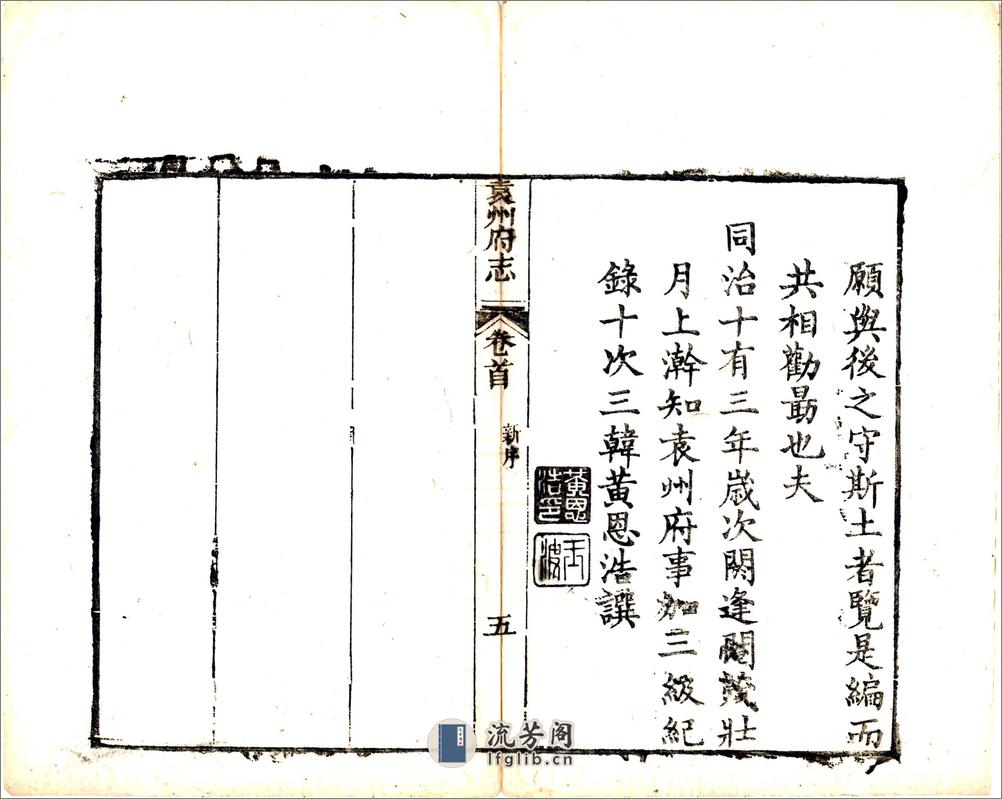 願與後之守斯土者覽是編而
共相勸勗也夫
同治十有三年歲次閼逢閹茂壯
月上澣知袁州府事加三級紀
錄十次三韓黃恩浩譔
黃恩
浩印
玉
波
袁州府志
卷首
新序
五
流芳阁
lfglib.cn